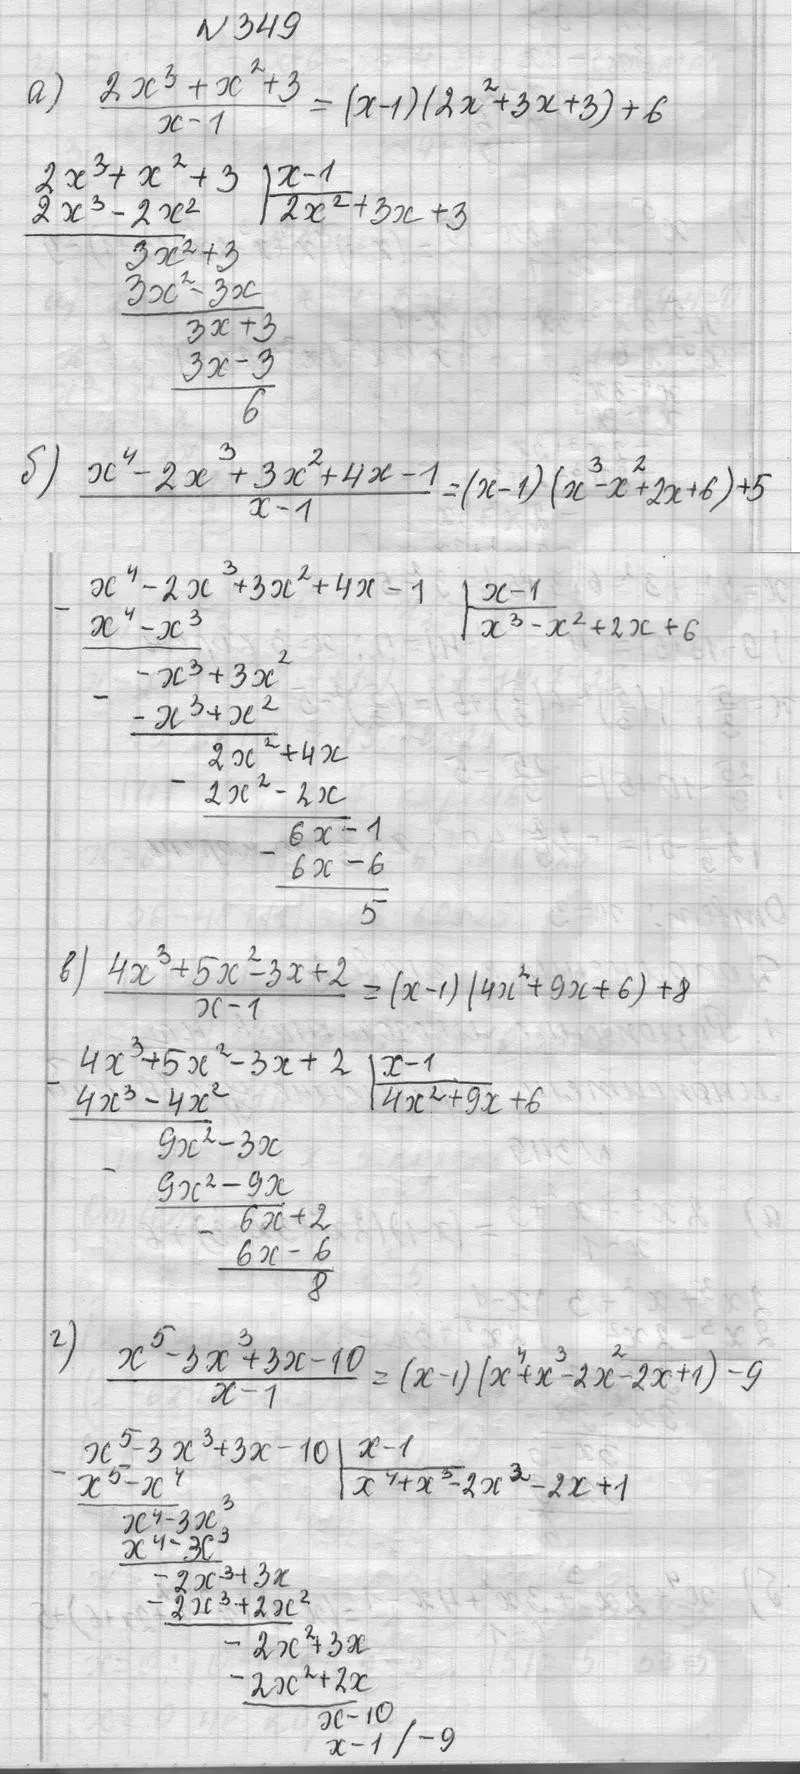 N 349
а) (2x³ + x² + 3)/(x - 1) = (x-1)(2x² + 3x + 3) + 6
2x³ + x² + 3 | x - 1
2x³ - 2x² | 2x² + 3x + 3
3x² + 3
3x² - 3x
3x + 3
3x - 3
6
б) (x⁴ - 2x³ + 3x² + 4x - 1)/(x - 1) = (x-1)(x³ - x² + 2x + 6) + 5
- x⁴ - 2x³ + 3x² + 4x - 1 | x - 1
x⁴ - x³ | x³ - x² + 2x + 6
- x³ + 3x²
- - x³ + x²
2x² + 4x
- 2x² - 2x
6x - 1
- 6x - 6
5
в) (4x³ + 5x² - 3x + 2)/(x - 1) = (x-1)(4x² + 9x + 6) + 8
- 4x³ + 5x² - 3x + 2 | x - 1
4x³ - 4x² | 4x² + 9x + 6
9x² - 3x
- 9x² - 9x
6x + 2
- 6x - 6
8
г) (x⁵ - 3x³ + 3x - 10)/(x - 1) = (x-1)(x⁴ + x³ - 2x² - 2x + 1) - 9
- x⁵ - 3x³ + 3x - 10 | x - 1
x⁵ - x⁴ | x⁴ + x³ - 2x² - 2x + 1
x⁴ - 3x³
x⁴ - x³
- 2x³ + 3x
- 2x³ + 2x²
- 2x² + 3x
- 2x² + 2x
x - 10
x - 1 / -9